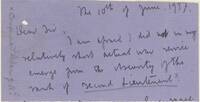 The 10th of June, 1937.
Dear Sir,
I am afraid I did not in my
relatively short actual war service
emerge from the obscurity of the
rank of Second Lieutenant!